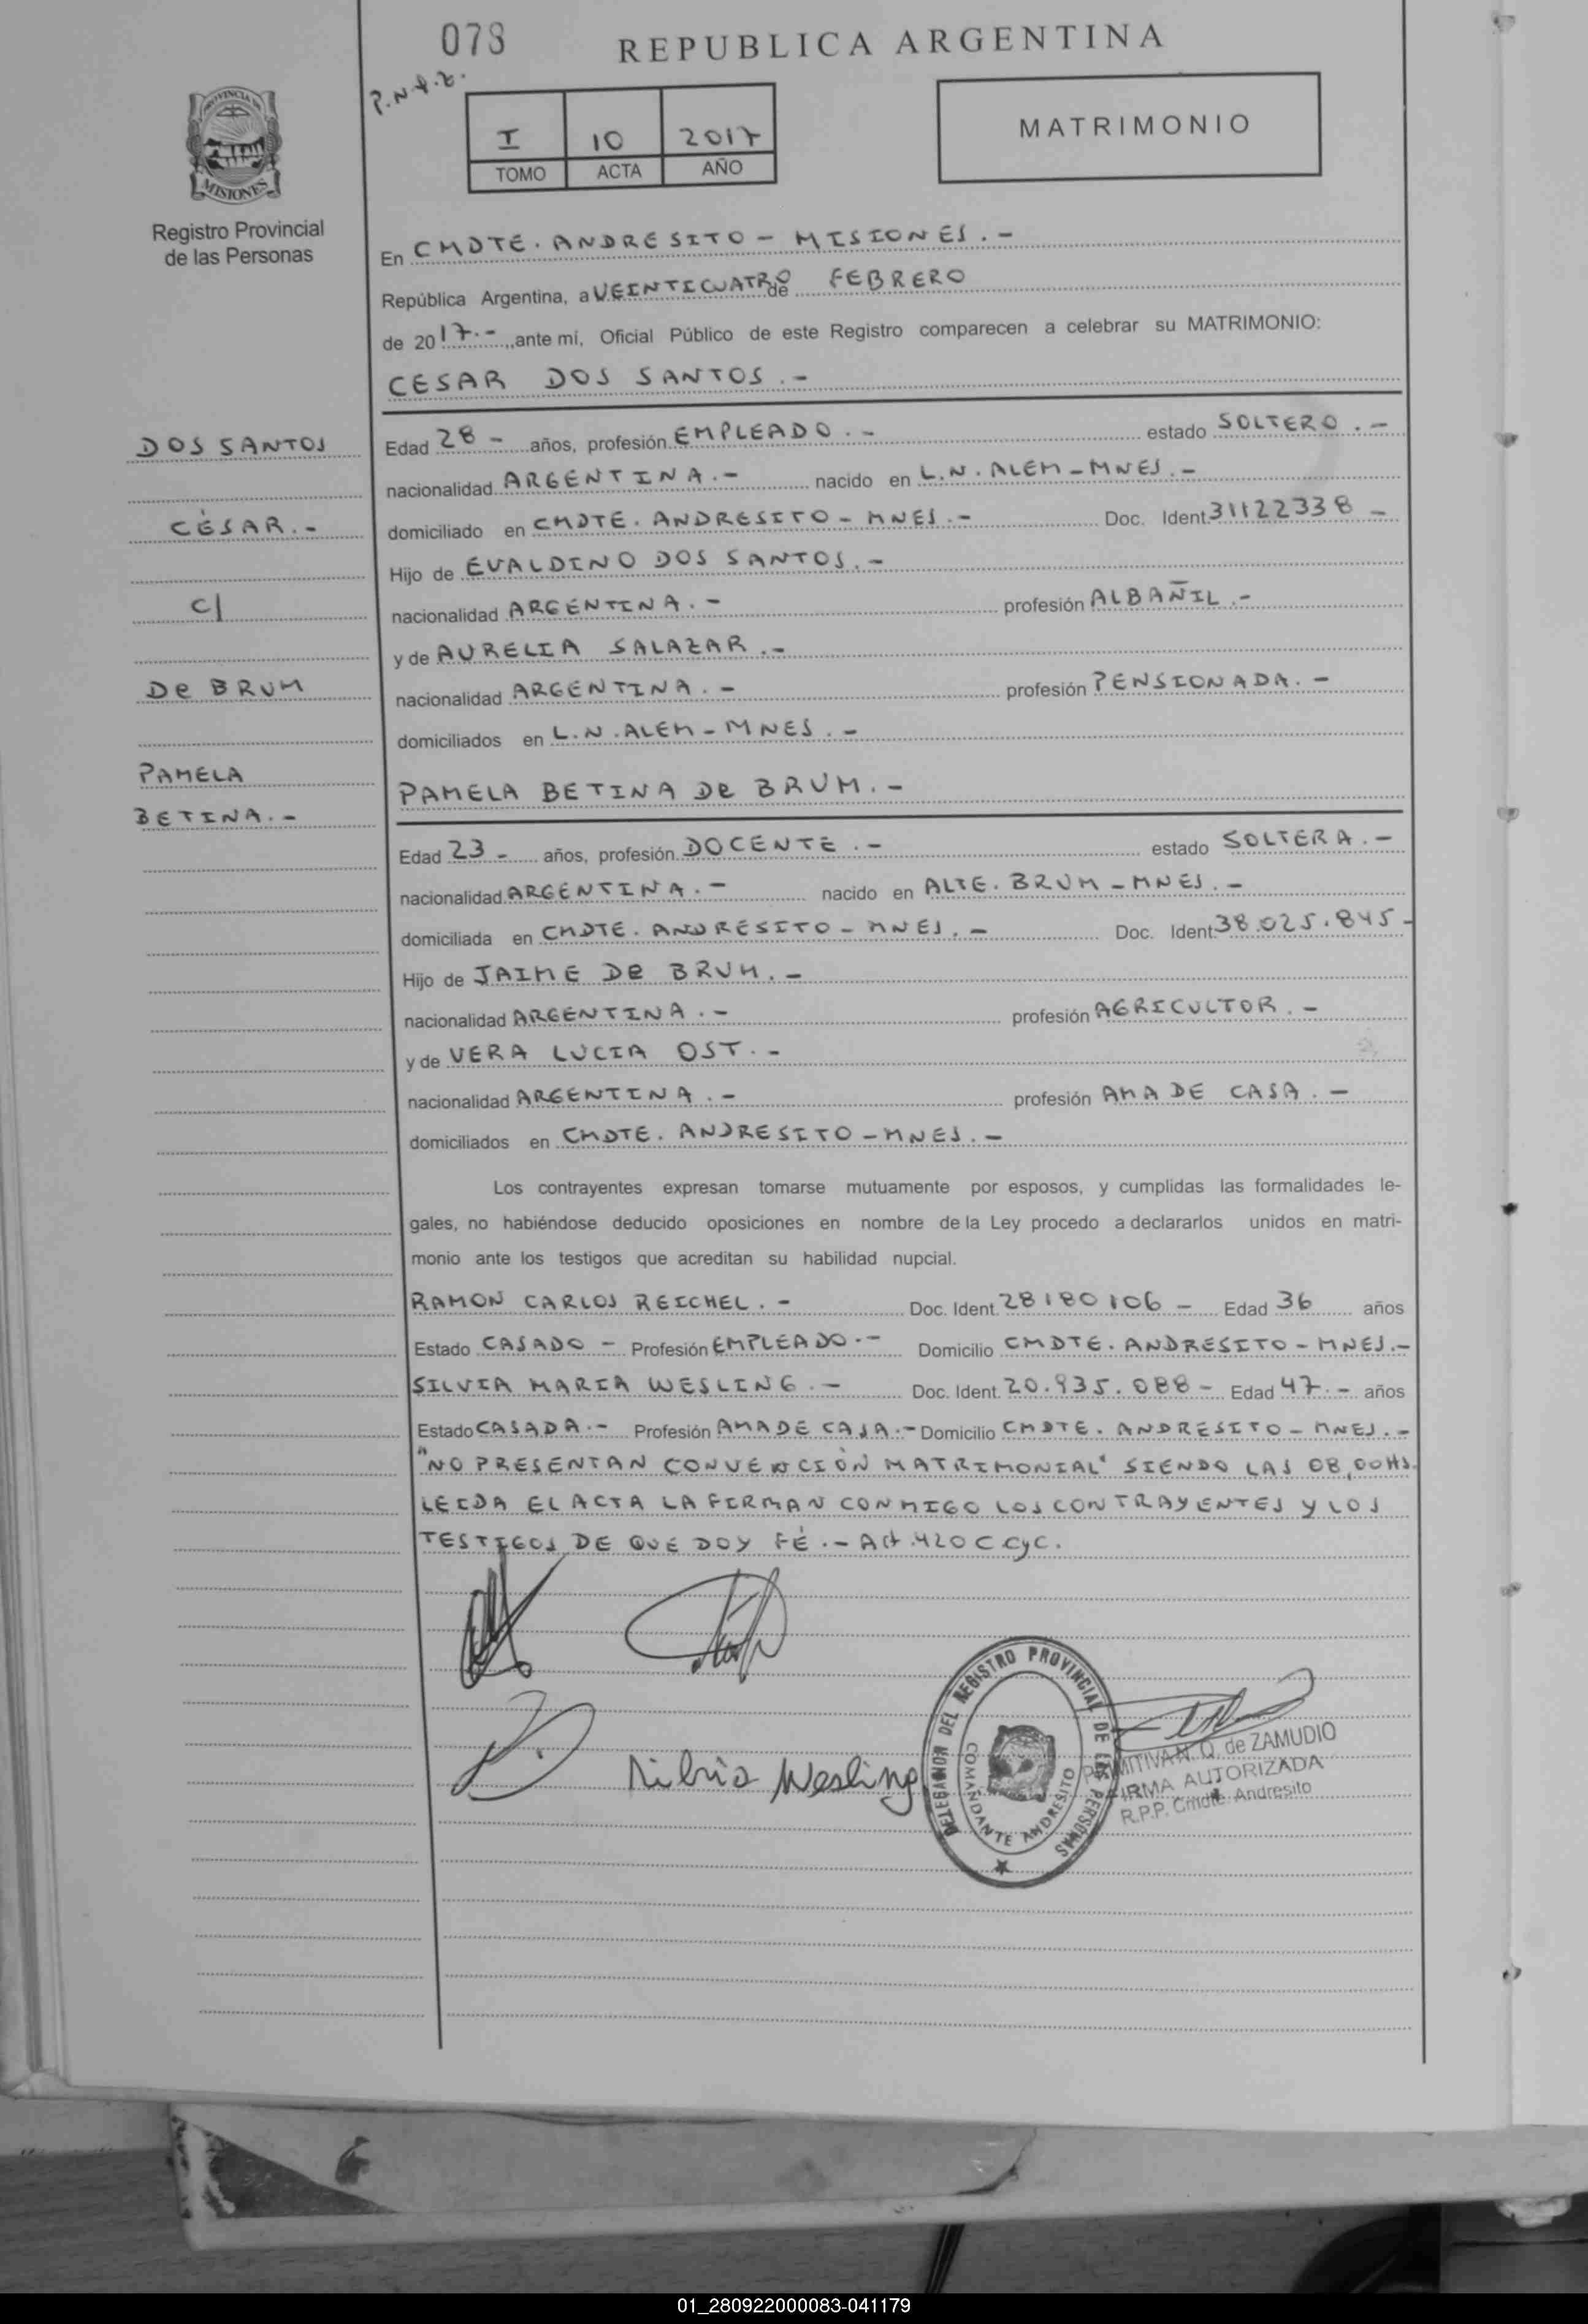 078
REPUBLICA ARGENTINA
P.N.
I 10 2017
TOMO ACTA AÑO
MATRIMONIO
PROVINCIA DE
MISIONES
Registro Provincial
de las Personas
En CMDTE. ANDRESITO - MISIONES.-
República Argentina, a VEINTICUATRO de FEBRERO
de 2017.- ,ante mí, Oficial Público de este Registro comparecen a celebrar su MATRIMONIO:
CESAR DOS SANTOS.-
DOS SANTOS
CÉSAR.-
c/
De BRUM
PAMELA
BETINA.-
Edad 28 - años, profesión EMPLEADO.- estado SOLTERO.-
nacionalidad ARGENTINA.- nacido en L.N. ALEM - MNES.-
domiciliado en CMDTE. ANDRESITO - MNES.- Doc. Ident. 31122338 -
Hijo de EVALDINO DOS SANTOS.-
nacionalidad ARGENTINA.- profesión ALBAÑIL.-
y de AURELIA SALAZAR.-
nacionalidad ARGENTINA.- profesión PENSIONADA.-
domiciliados en L.N. ALEM - MNES.-
PAMELA BETINA De BRUM.-
Edad 23 - años, profesión DOCENTE.- estado SOLTERA.-
nacionalidad ARGENTINA.- nacido en ALTE. BRUM - MNES.-
domiciliada en CMDTE. ANDRESITO - MNES.- Doc. Ident. 38.025.845-
Hijo de JAIME De BRUM.-
nacionalidad ARGENTINA.- profesión AGRICULTOR.-
y de VERA LUCIA OST.-
nacionalidad ARGENTINA.- profesión AMA DE CASA.-
domiciliados en CMDTE. ANDRESITO - MNES.-
Los contrayentes expresan tomarse mutuamente por esposos, y cumplidas las formalidades le-
gales, no habiéndose deducido oposiciones en nombre de la Ley procedo a declararlos unidos en matri-
monio ante los testigos que acreditan su habilidad nupcial.
RAMON CARLOS REICHEL.- Doc. Ident. 28180106 - Edad 36 años
Estado CASADO - Profesión EMPLEADO.- Domicilio CMDTE. ANDRESITO - MNES.-
SILVIA MARIA WESLING.- Doc. Ident. 20.935.088 - Edad 47.- años
Estado CASADA.- Profesión AMA DE CASA.- Domicilio CMDTE. ANDRESITO - MNES.-
"NO PRESENTAN CONVENCIÓN MATRIMONIAL" SIENDO LAS 08,00HS.
LEIDA EL ACTA LA FIRMAN CONMIGO LOS CONTRAYENTES Y LOS
TESTIGOS DE QUE DOY FÉ.- Art.420 C.CyC.
Silvia Wesling
DELEGACION DEL REGISTRO PROVINCIAL DE LAS PERSONAS
COMANDANTE ANDRESITO
PRIMITIVA N. Q. de ZAMUDIO
FIRMA AUTORIZADA
R.P.P. Cmdte. Andresito
01_280922000083-041179